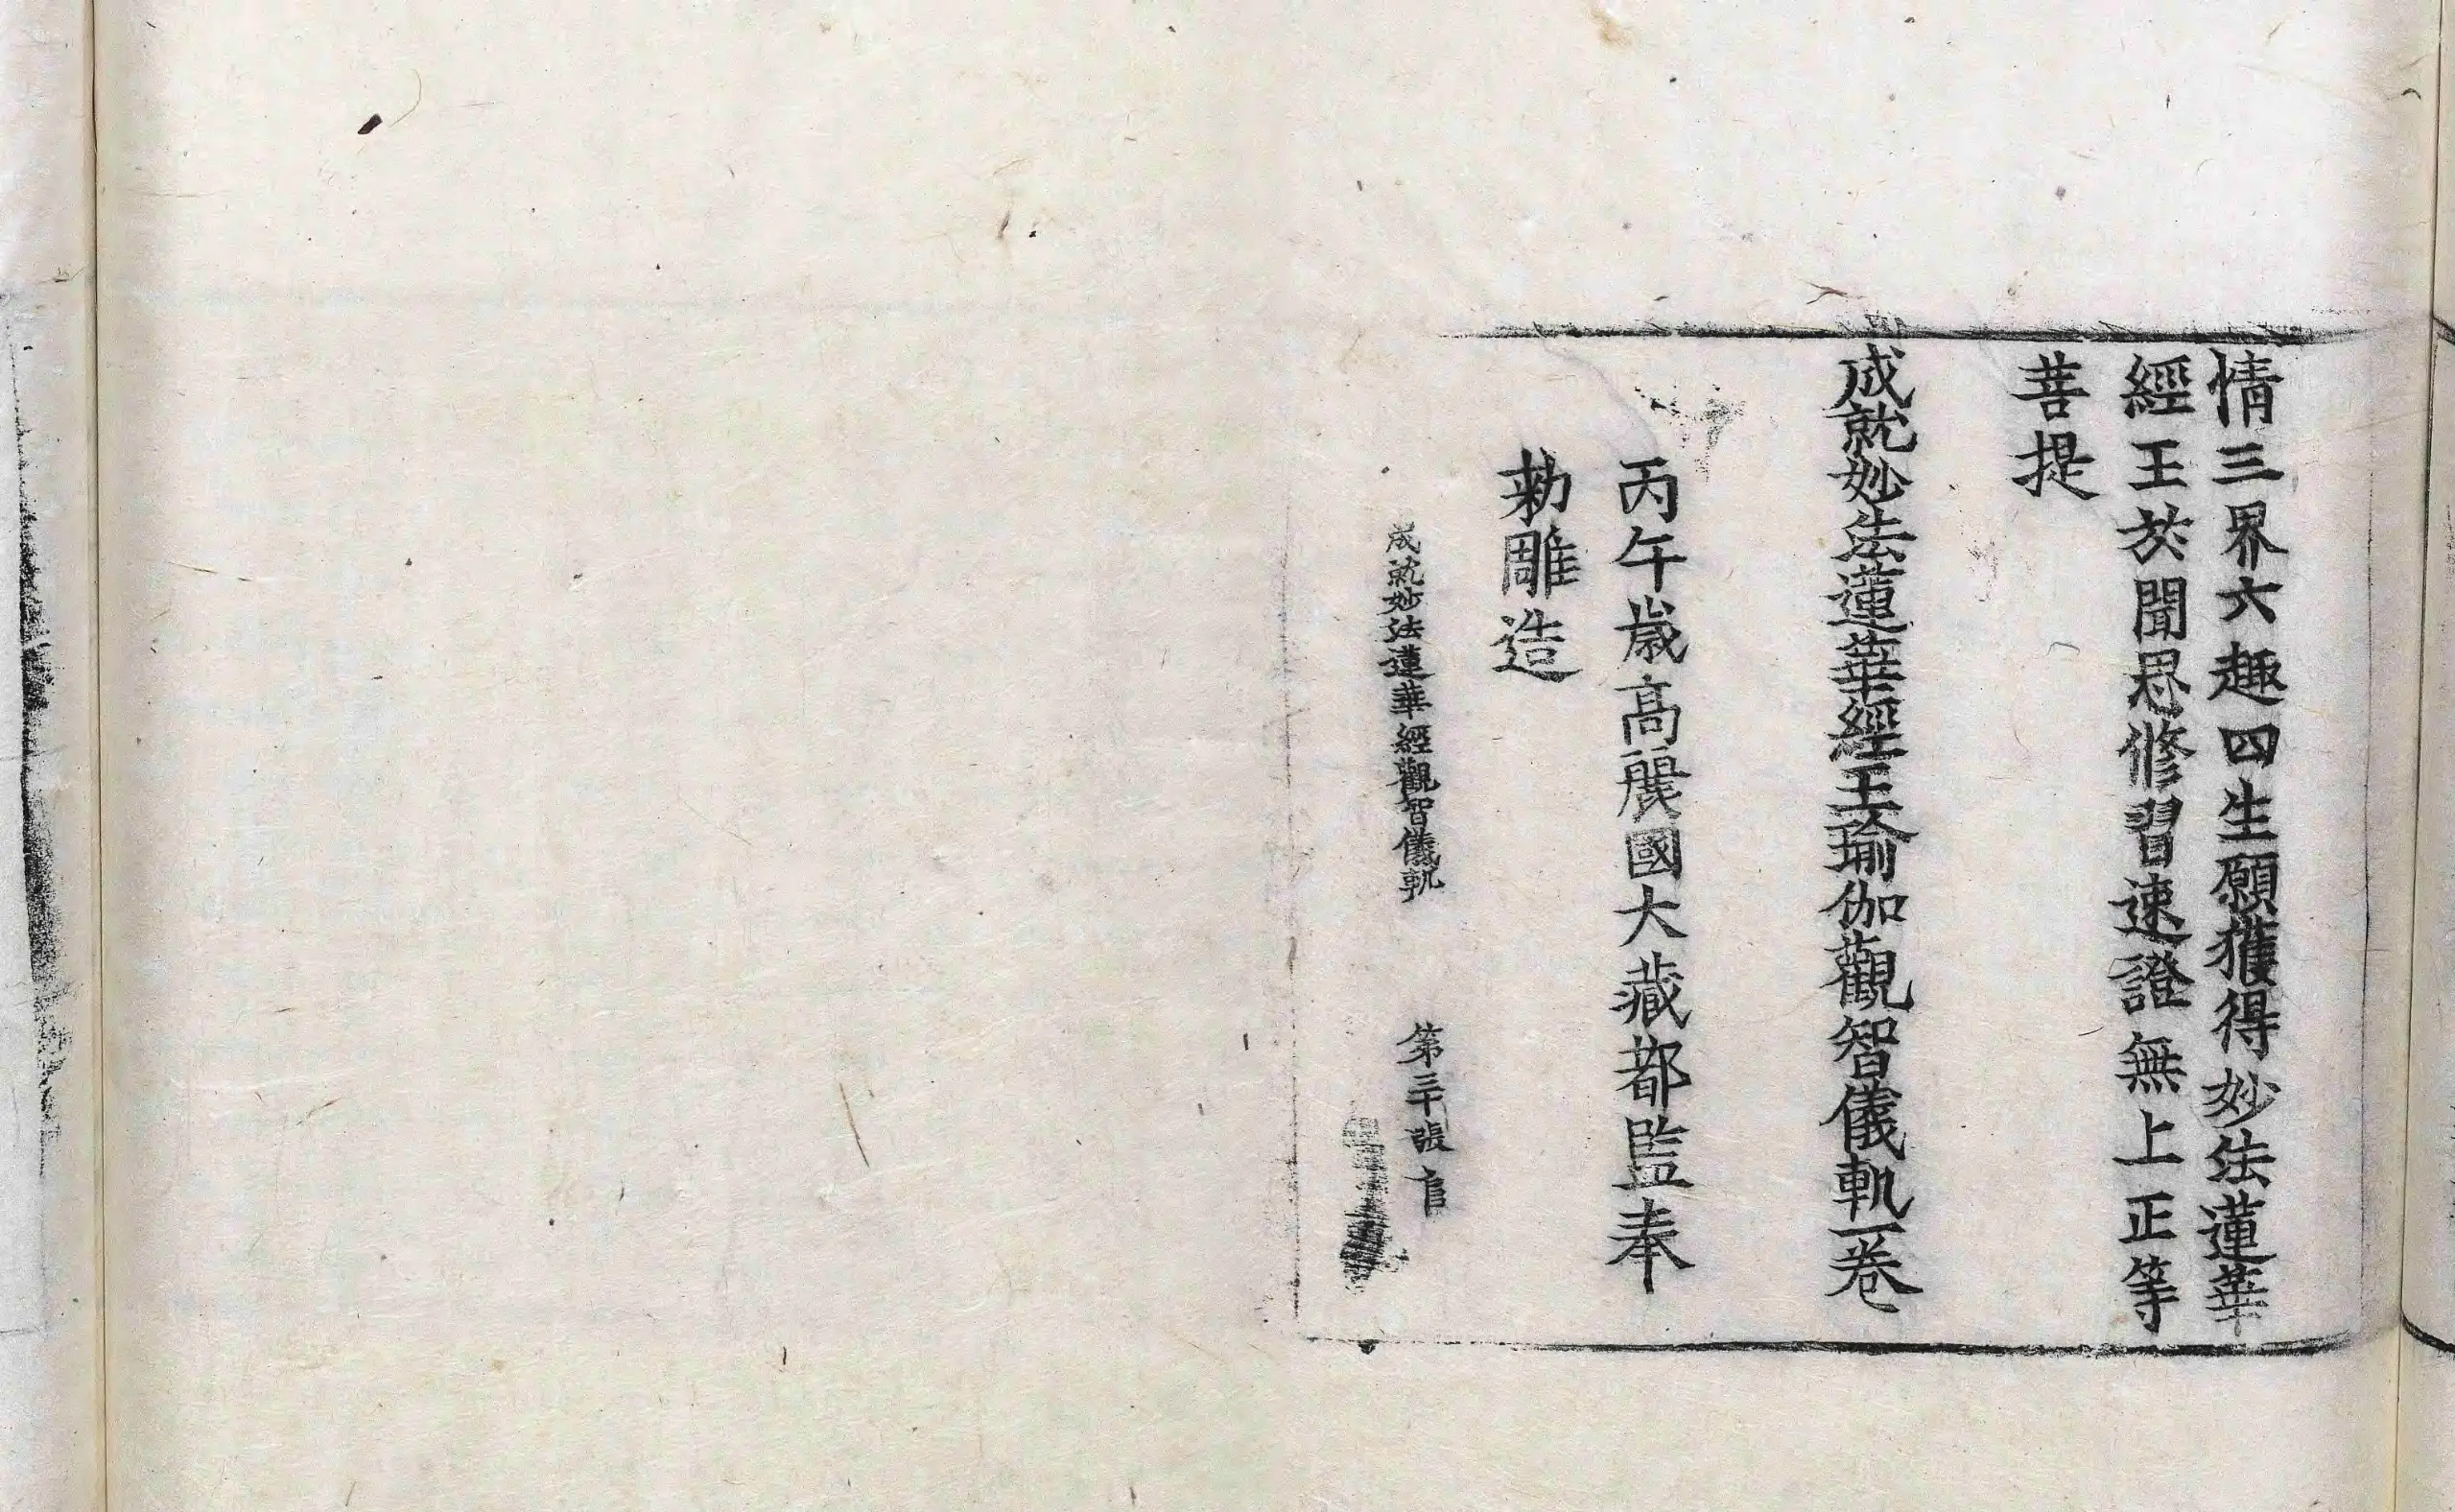 情三界六趣四生願獲得妙法蓮華
經王於聞思修習速證無上正等
菩提
成就妙法蓮華經王瑜伽觀智儀軌一卷
丙午歲高麗國大藏都監奉
勑雕造
成就妙法蓮華經觀智儀軌 第三十張